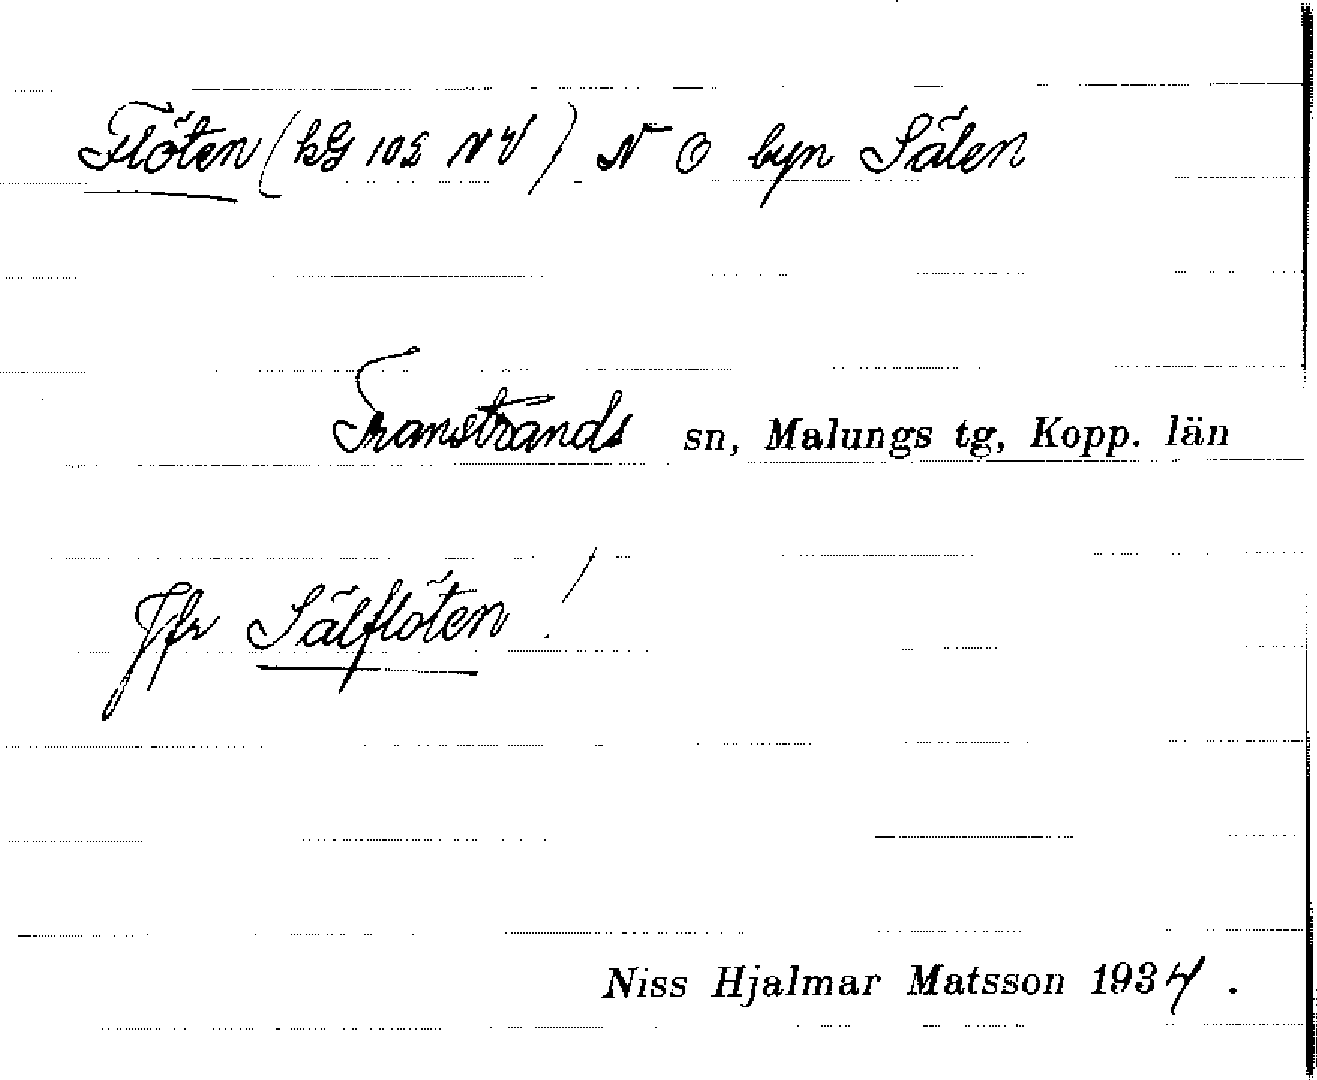 Flöten (kG 102 NV) N O byn Sälen
Transtrands sn, Malungs tg, Kopp. län
Jfr Sälflöten!
Niss Hjalmar Matsson 1934.